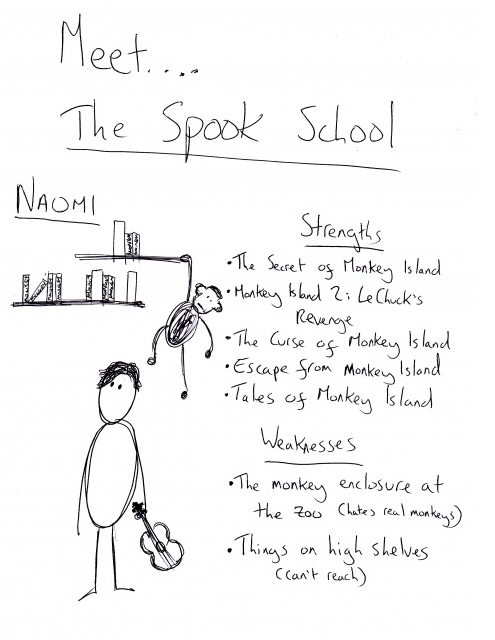 Meet....
The Spook School
NAOMI
Strengths
• The Secret of Monkey Island
• Monkey Island 2: LeChuck's
Revenge
• The Curse of Monkey Island
• Escape from Monkey Island
• Tales of Monkey Island
Weaknesses
• The monkey enclosure at
the zoo (hates real monkeys)
• Things on high shelves
(can't reach)